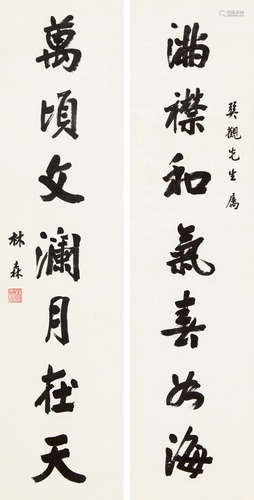 奚觀先生属
滿襟和氣春如海
萬頃文澜月在天
林森